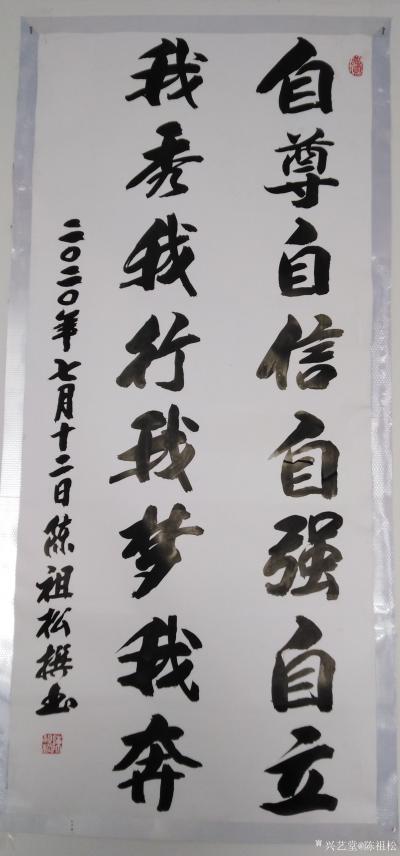 自尊自信自强自立
我秀我行我梦我奔
二〇二〇年七月十二日陈祖松撰书
兴艺堂@陈祖松